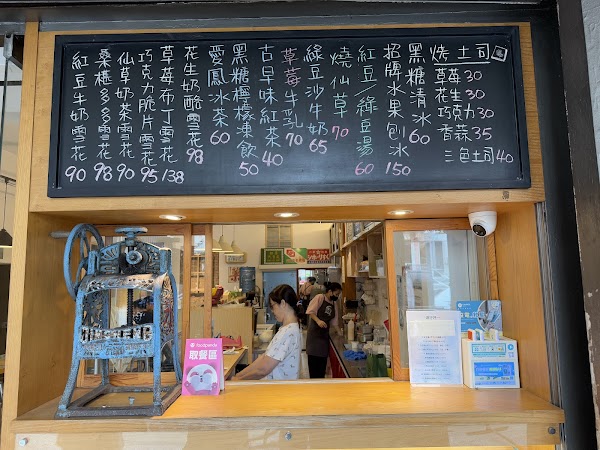 烤土司
草莓30
花生30
巧克力30
香蒜35
三色土司40
黑糖清冰 60
招牌水果刨冰 150
紅豆/綠豆湯 60
燒仙草 70
綠豆沙牛奶 65
草莓牛乳 70
古早味紅茶 40
黑糖檸檬凍飲 50
愛鳳冰茶 60
花生奶酪雪花 98
草莓布丁雪花 138
巧克力脆片雪花 95
仙草奶茶雪花 90
桑椹多多雪花 98
紅豆牛奶雪花 90
foodpanda
取餐區